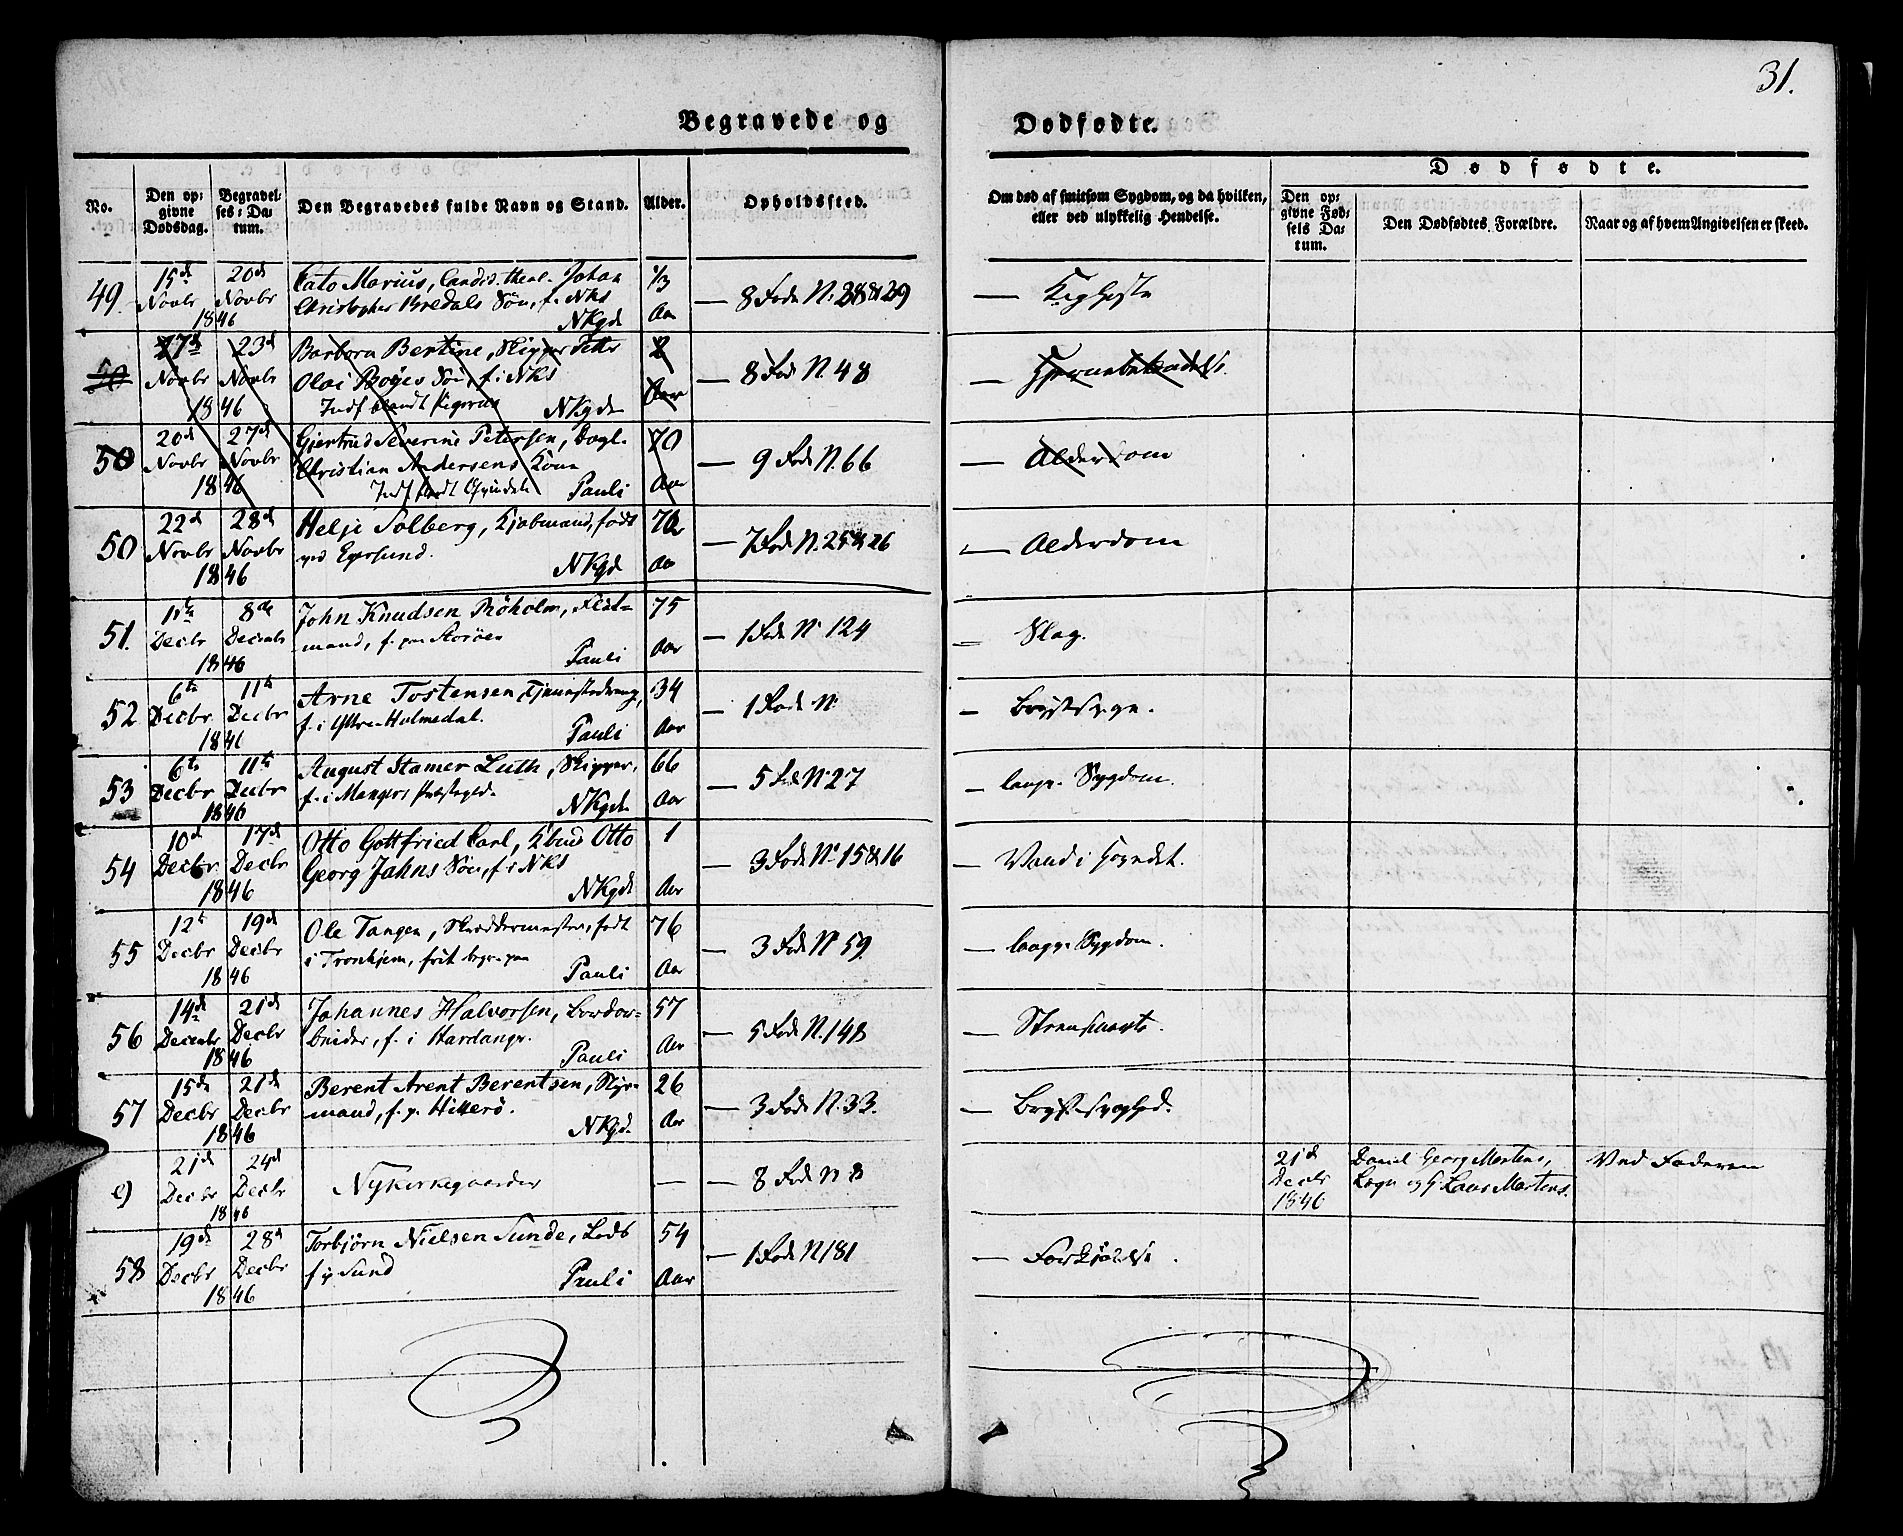 31.
Begravede og Dødfødte.
Dødfødte.
No.
Den opgivne Dødsdag.
Begravelses-Datum.
Den Begravedes fulde Navn og Stand.
Alder.
Opholdssted.
Om død af smitsom Sygdom, og da hvilken, eller ved ulykkelig Hendelse.
Den opgivne Fødsels Datum.
Den Dødfødtes Forældre.
Naar og af hvem Angivelsen er skeed.
49. 15de Novbr 20de Novbr 1846
Cato Marius, Candid. theol. Johan
Bredals Søn, f. i NKS
NKgd
1/3 Aar
8 Rode N. 28 & 29
Kighoste
50 17de Novbr 23de Novbr 1846
Barbara Bertine, Skipper Petter
Olai Søn, f. i NKS
Indf blandt NKgd
2 Aar
8 Rode N. 48
50 20de Novbr 27de Novbr 1846
Gjertrud Severine Petersen, Dagl.
Christian Andersens Kone
Indf blandt Pauli
70 Aar
9 Rode N. 66
Alderdom
50 22de Novbr 28de Novbr 1846
Helje Solberg, Kjøbmand, født
ved Egersund.
NKgd
70 Aar
7 Rode N. 25 & 26
Alderdom
51. 1ste Decbr 8de Decembr 1846
John Knudsen Røholm,
mand, f. paa Storøen
Pauli
75 Aar
1 Rode N. 124
Slag.
52 6te Decbr 11te Decbr 1846
Arne Tostensen,
f. i Yttre-Holmedal.
Pauli
34 Aar
1 Rode N.
Brystsyge.
53 6te Decbr 11te Decbr 1846
August Stamer Luth, Skipper,
f. i Mangers Præstegd.
NKgd.
66 Aar
5 Rode N. 27
langv. Sygdom.
54 10de Decbr 17de Decbr 1846
Otto Gottfried Carl, Kbmd Otto
Georg Jahns Søn, f. i NKS
NKgd
1 Aar
3 Rode N. 15 & 16
Vand i Hovedet.
55 12te Decbr 19de Decbr 1846
Ole Tangen, Skreddermester, født
i Tronhjem, frit begr. paa
Pauli
76 Aar
3 Rode N. 59
langv. Sygdom.
56 14de Decembr 21de Decbr 1846
Johannes Halvorsen,
f. i Hardanger.
Pauli
57 Aar
5 Rode N. 148
57 15de Decbr 21de Decbr 1846
Berent Arent Berentsen, Styr-
mand, f. p. Hitterø.
NKgd.
26 Aar
3 Rode N. 33.
Brystsyghed.
e) 21de Decbr 24de Decbr 1846
Nykirkegaarden
8 Rode N. 8
21de Decbr 1846
Daniel Georg Martens,
og Martens.
Ved Faderen
58 19de Decbr 28de Decbr 1846
Torbjørn Nielsen Sunde, Lods
f. p. Sund
Pauli
54 Aar
1 Rode N 181
Forkjølelse.